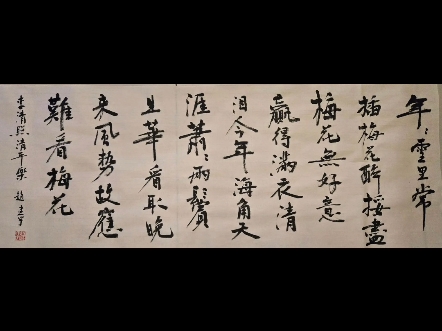 年〻雪里常
插梅花醉挼盡
梅花無好意
贏得滿衣清
泪今年海角天
涯蕭〻兩鬢
生華看取晚
来風勢故應
難看梅花
李清照清平樂 趙